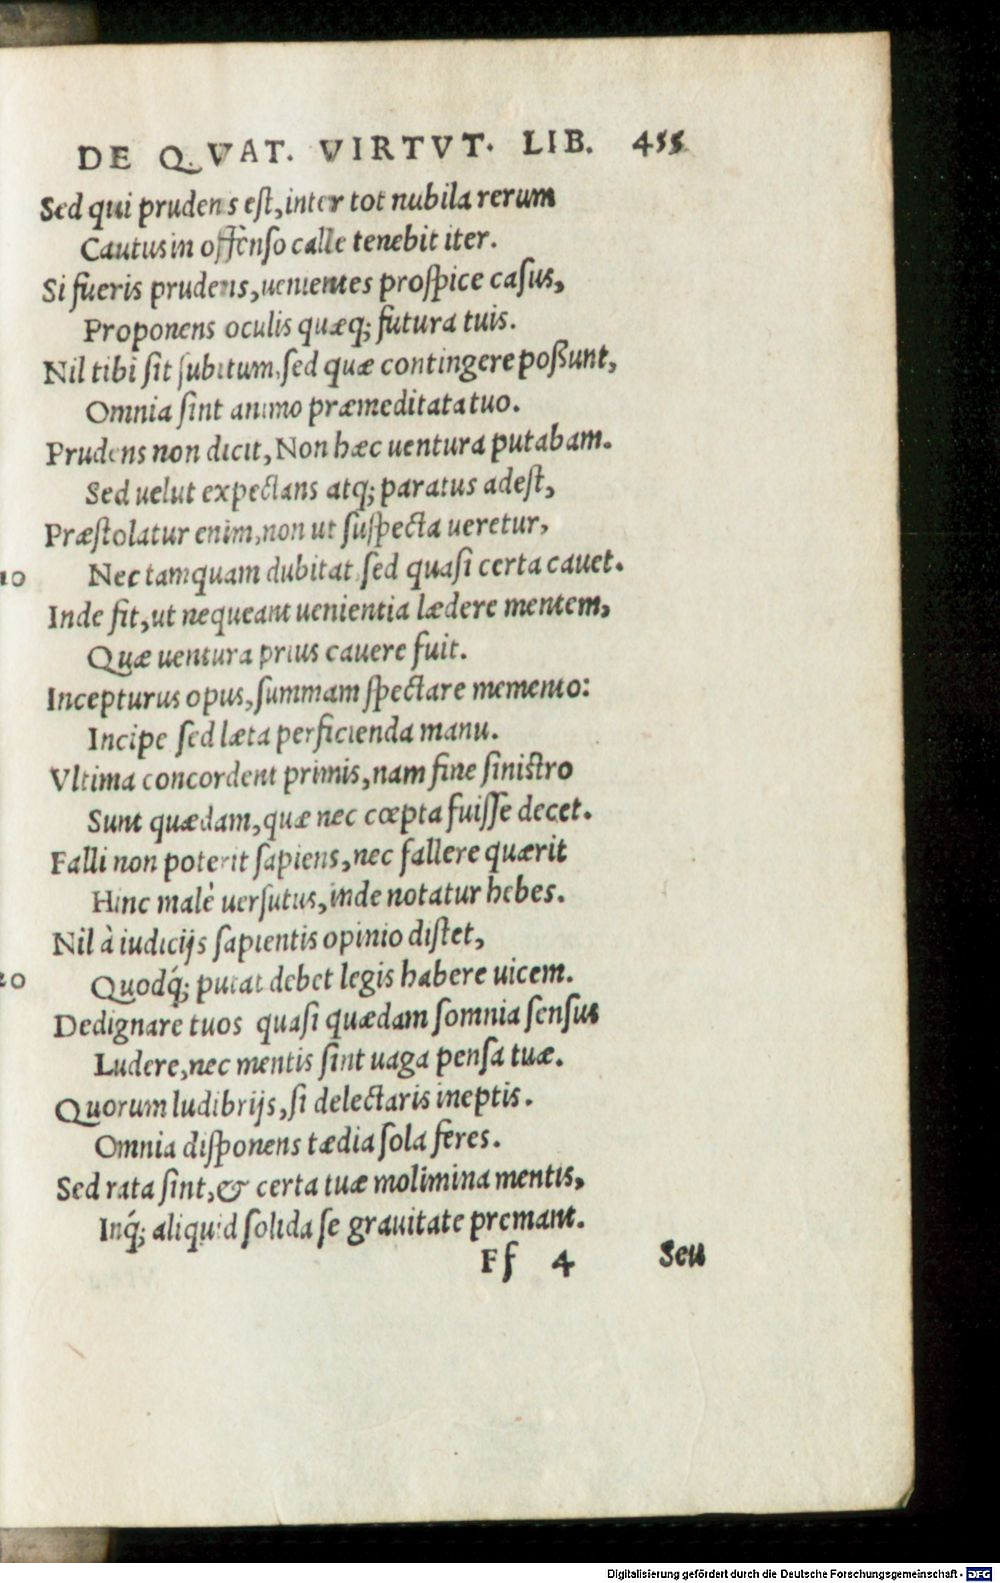 DE QVAT. VIRTVT. LIB. 455
Sed qui prudens eſt, inter tot nubila rerum
Cautus in offenſo calle tenebit iter.
Si fueris prudens, uenientes proſpice caſus,
Proponens oculis quæq; futura tuis.
Nil tibi ſit ſubitum, ſed quæ contingere poßunt,
Omnia ſint animo præmeditata tuo.
Prudens non dicit, Non hæc uentura putabam.
Sed uelut expectans atq; paratus adeſt,
Præſtolatur enim, non ut ſuſpecta ueretur,
10 Nec tamquam dubitat, ſed quaſi certa cauet.
Inde fit, ut nequeant uenientia lædere mentem,
Quæ uentura prius cauere fuit.
Incepturus opus, ſummam ſpectare memento:
Incipe ſed læta perficienda manu.
Vltima concordent primis, nam fine ſiniſtro
Sunt quædam, quæ nec cœpta fuiſſe decet.
Falli non poterit ſapiens, nec fallere quærit
Hinc malè uerſutus, inde notatur hebes.
Nil à iudicijs ſapientis opinio diſtet,
20 Quodq́; putat debet legis habere uicem.
Dedignare tuos quaſi quædam ſomnia ſenſus
Ludere, nec mentis ſint uaga penſa tuæ.
Quorum ludibrijs, ſi delectaris ineptis.
Omnia diſponens tædia ſola feres.
Sed rata ſint, & certa tuæ molimina mentis,
Inq́; aliquid ſolida ſe grauitate premant.
Ff 4 Seu
Digitalisierung gefördert durch die Deutsche Forschungsgemeinschaft - DFG